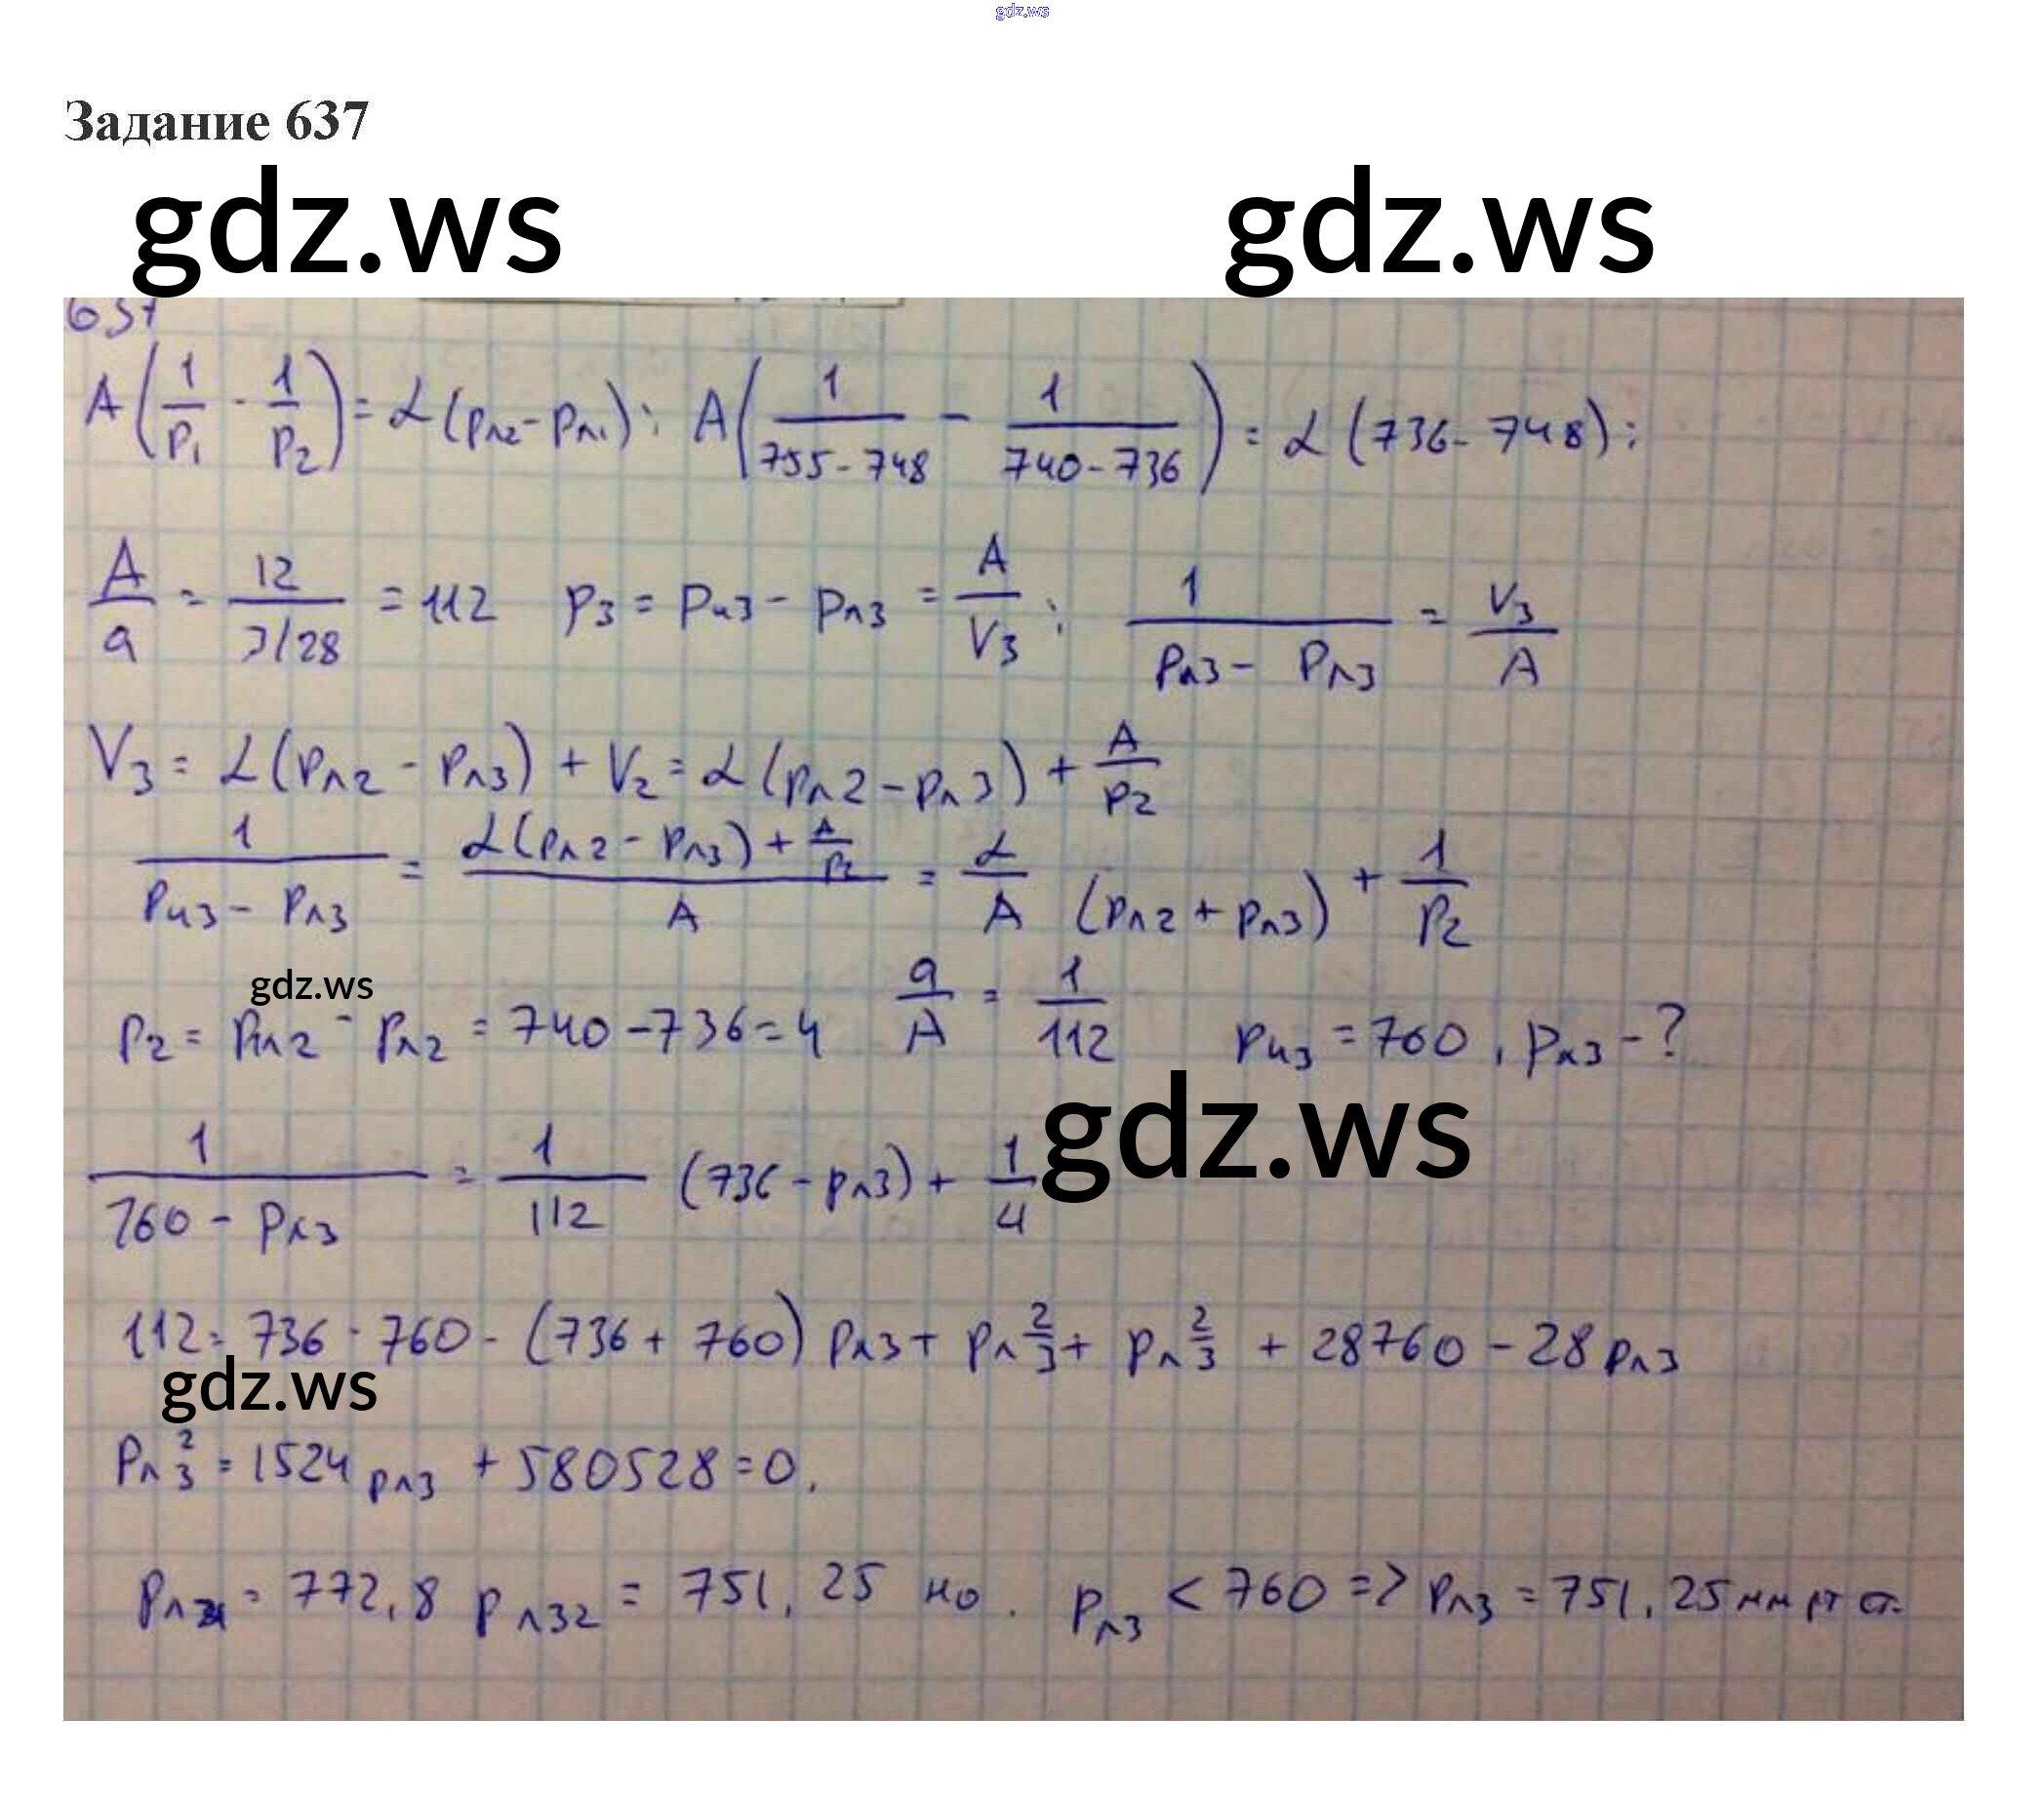 gdz.ws
Задание 637
gdz.ws gdz.ws
637
A(1/p₁ - 1/p₂) = α(pл₂ - pл₁); A(1/(755-748) - 1/(740-736)) = α(736-748);
A/a = 12/(3/28) = 112 p₃ = pи₃ - pл₃ = A/V₃; 1/(pи₃ - pл₃) = V₃/A
V₃ = α(pл₂ - pл₃) + V₂ = α(pл₂ - pл₃) + A/p₂
1/(pи₃ - pл₃) = (α(pл₂ - pл₃) + A/p₂)/A = α/A (pл₂ + pл₃) + 1/p₂
gdz.ws
p₂ = pи₂ - pл₂ = 740 - 736 = 4 a/A = 1/112 pи₃ = 760, pл₃ - ?
gdz.ws
1/(760 - pл₃) = 1/112 (736 - pл₃) + 1/4
112 = 736 · 760 - (736 + 760) pл₃ + pл 2/3 + pл 2/3 + 28760 - 28 pл₃
gdz.ws
pл₃² = 1524 pл₃ + 580528 = 0.
pл₃₁ = 772,8 pл₃₂ = 751,25 но. pл₃ < 760 => pл₃ = 751,25 мм рт ст.